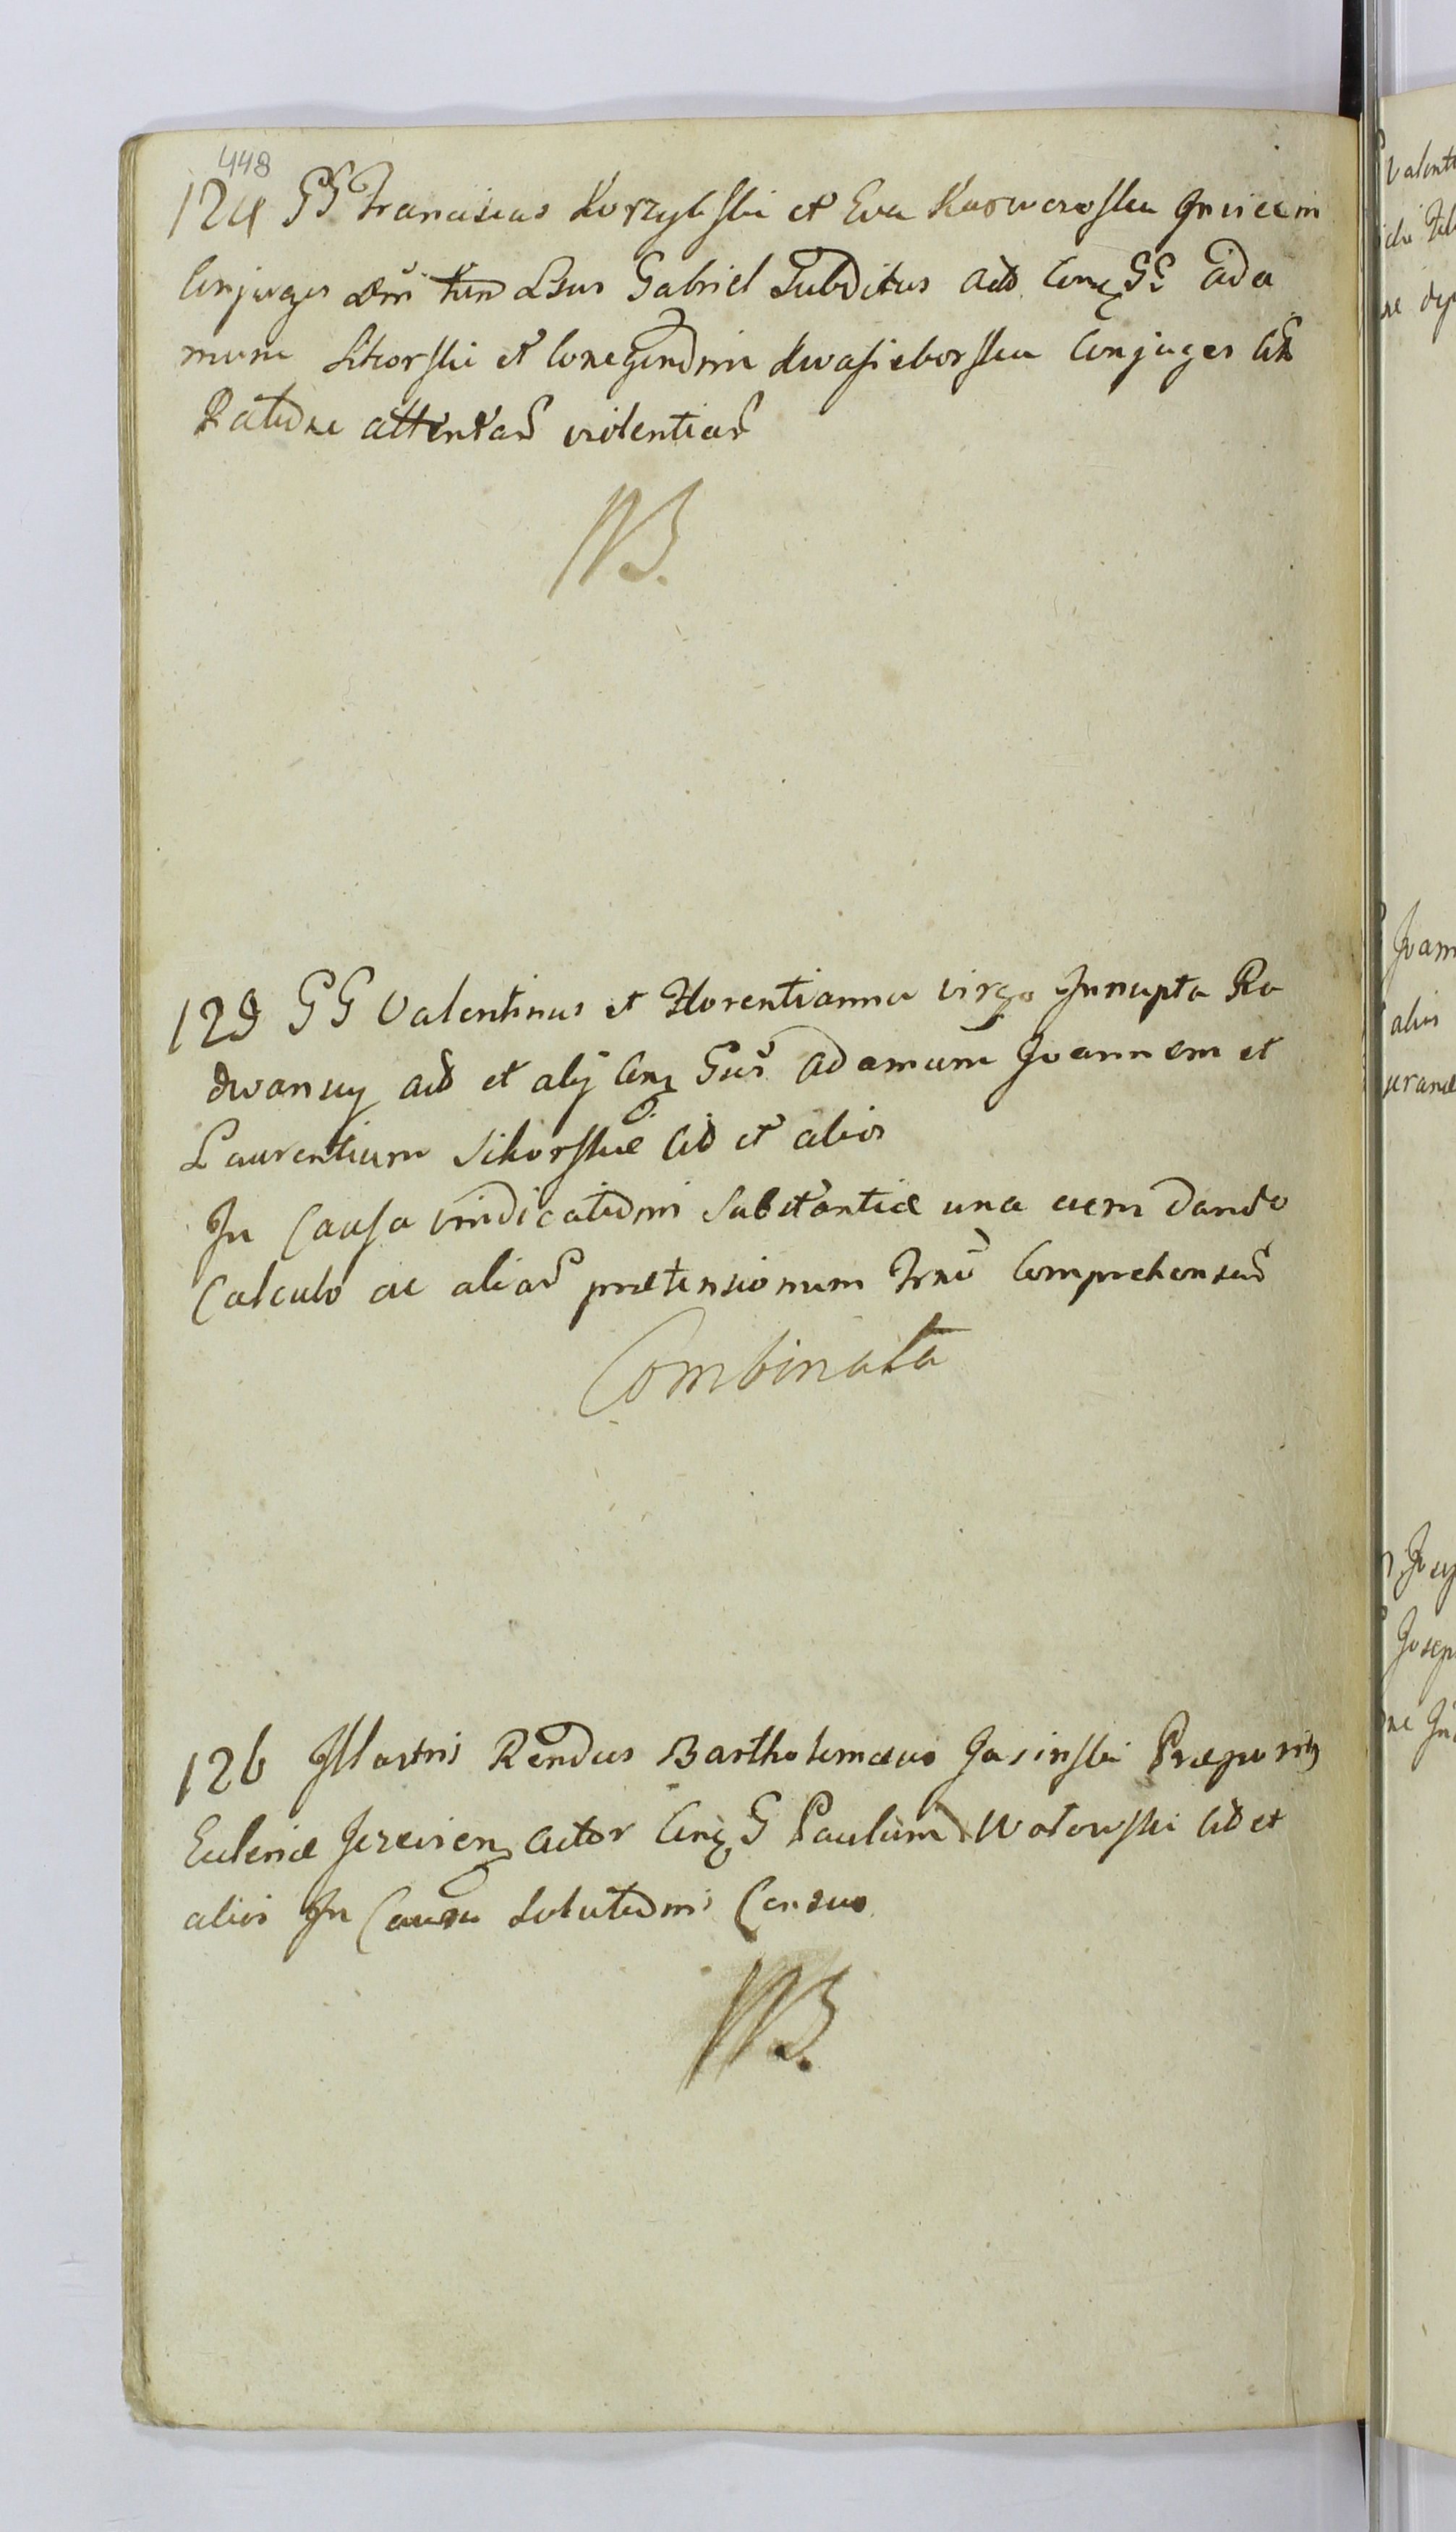 448
124 GG Franciscus Korzybski et Eva Invicem
Conjuges Lsus Gabriel Subditus act Cong GG Ada
mum Sikorski et Conegundim Kwasieborska Conjuges Cit
Ratione attentar violentiar
NB.
125 GG Valentinus et Florentianna virgo Innupta Ra
dwanscy act et alij Cong Gsos Adamum Joannem et
Laurentium Sikorskie Cit et alios
In Causa vindicationis Substantiæ una cum dando
Calculo ac aliar prætensionum Trnu Comprehensar
Combinata
126 Illustris Rendus Bartholomæus Jasinski Præpositg
Eccleriæ actor Cong G Paulum Wołowski Cit et
alios In Causa Solutionis Census
NB.